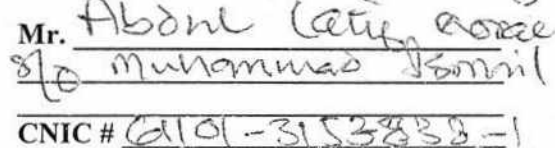 Mr. Abdul Latif
s/o Muhammad Ismail
CNIC # 61101-3153838-1